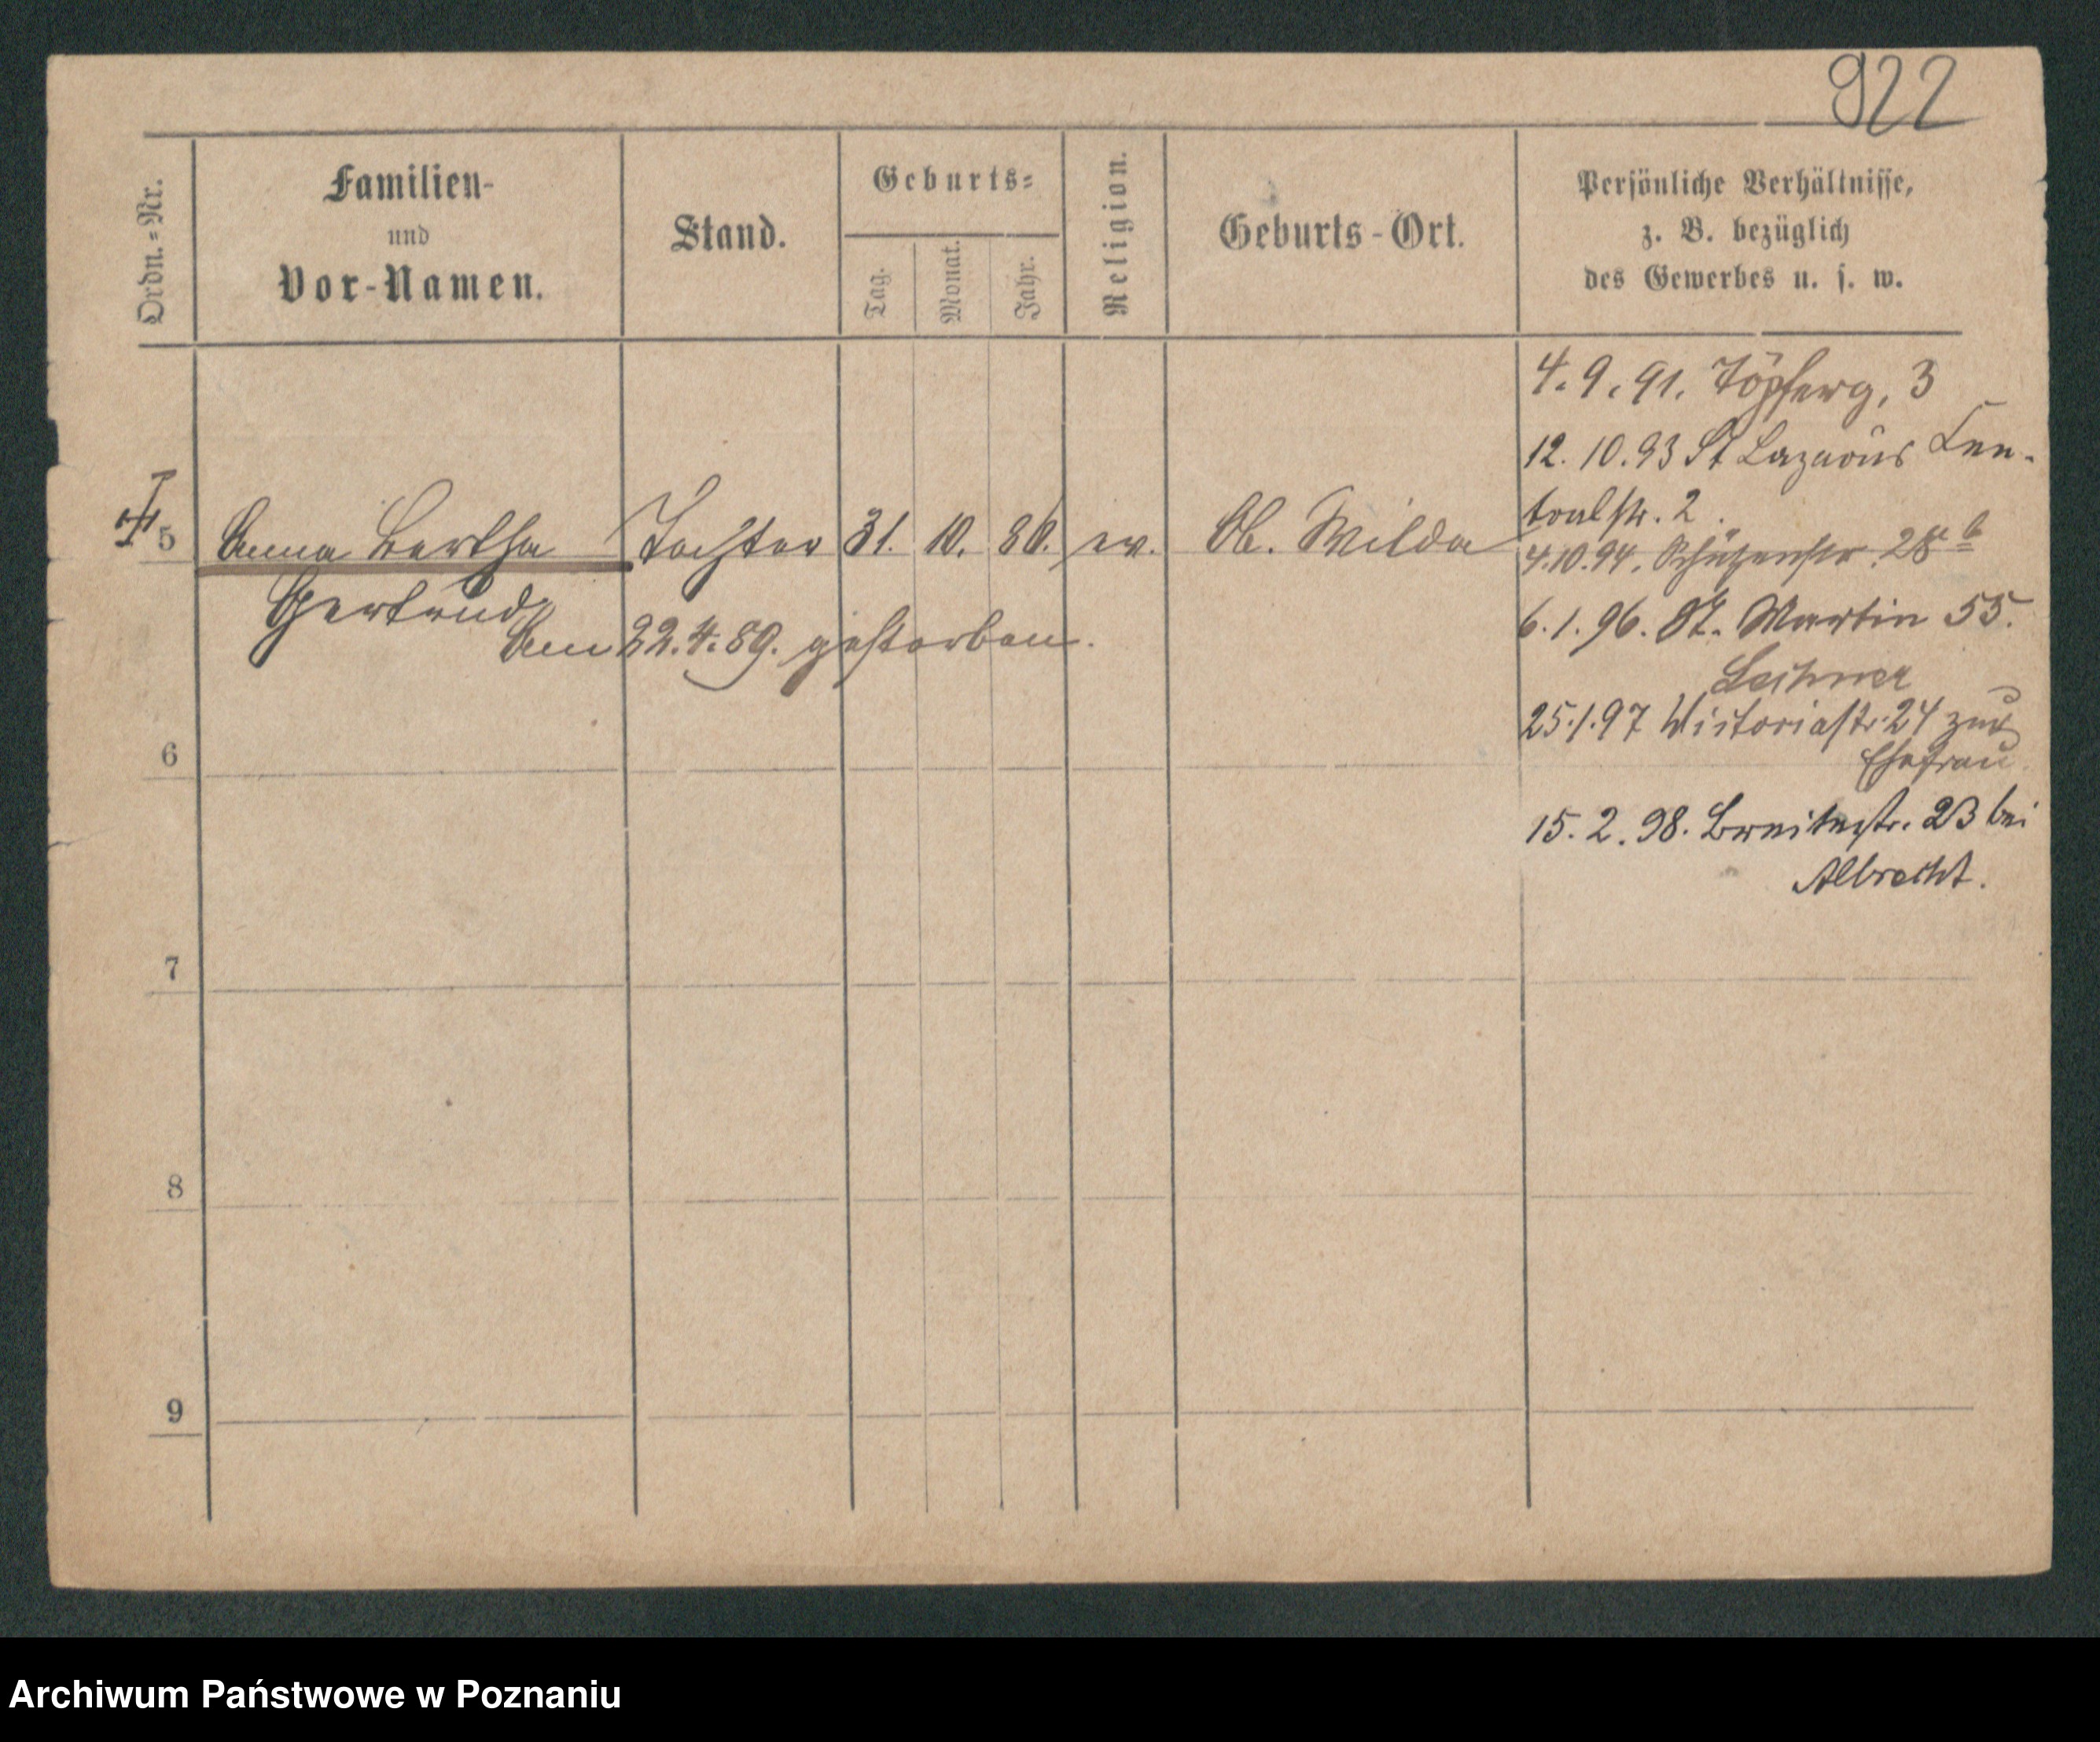 922
Ordn.=Nr.
Familien-
und
Vor-Namen.
Stand.
Geburts=
Tag.
Monat.
Jahr.
Religion.
Geburts-Ort.
Persönliche Verhältnisse,
z. B. bezüglich
des Gewerbes u. s. w.
4.9.91. Töpferg, 3
12.10.93 St Lazarus
str. 2.
5 Anna Bertha Tochter 31. 10. 86. ev. Ob. Wilda
4.10.94. Schützenstr. 28b
Gertrud
6.1.96. St. Martin 55.
Am 22.4.89. gestorben.
25.1.97 Victoriastr. 24 zur
Ehefrau
6
15.2.98. Breitestr. 23 bei
Albrecht.
7
8
9
Archiwum Państwowe w Poznaniu